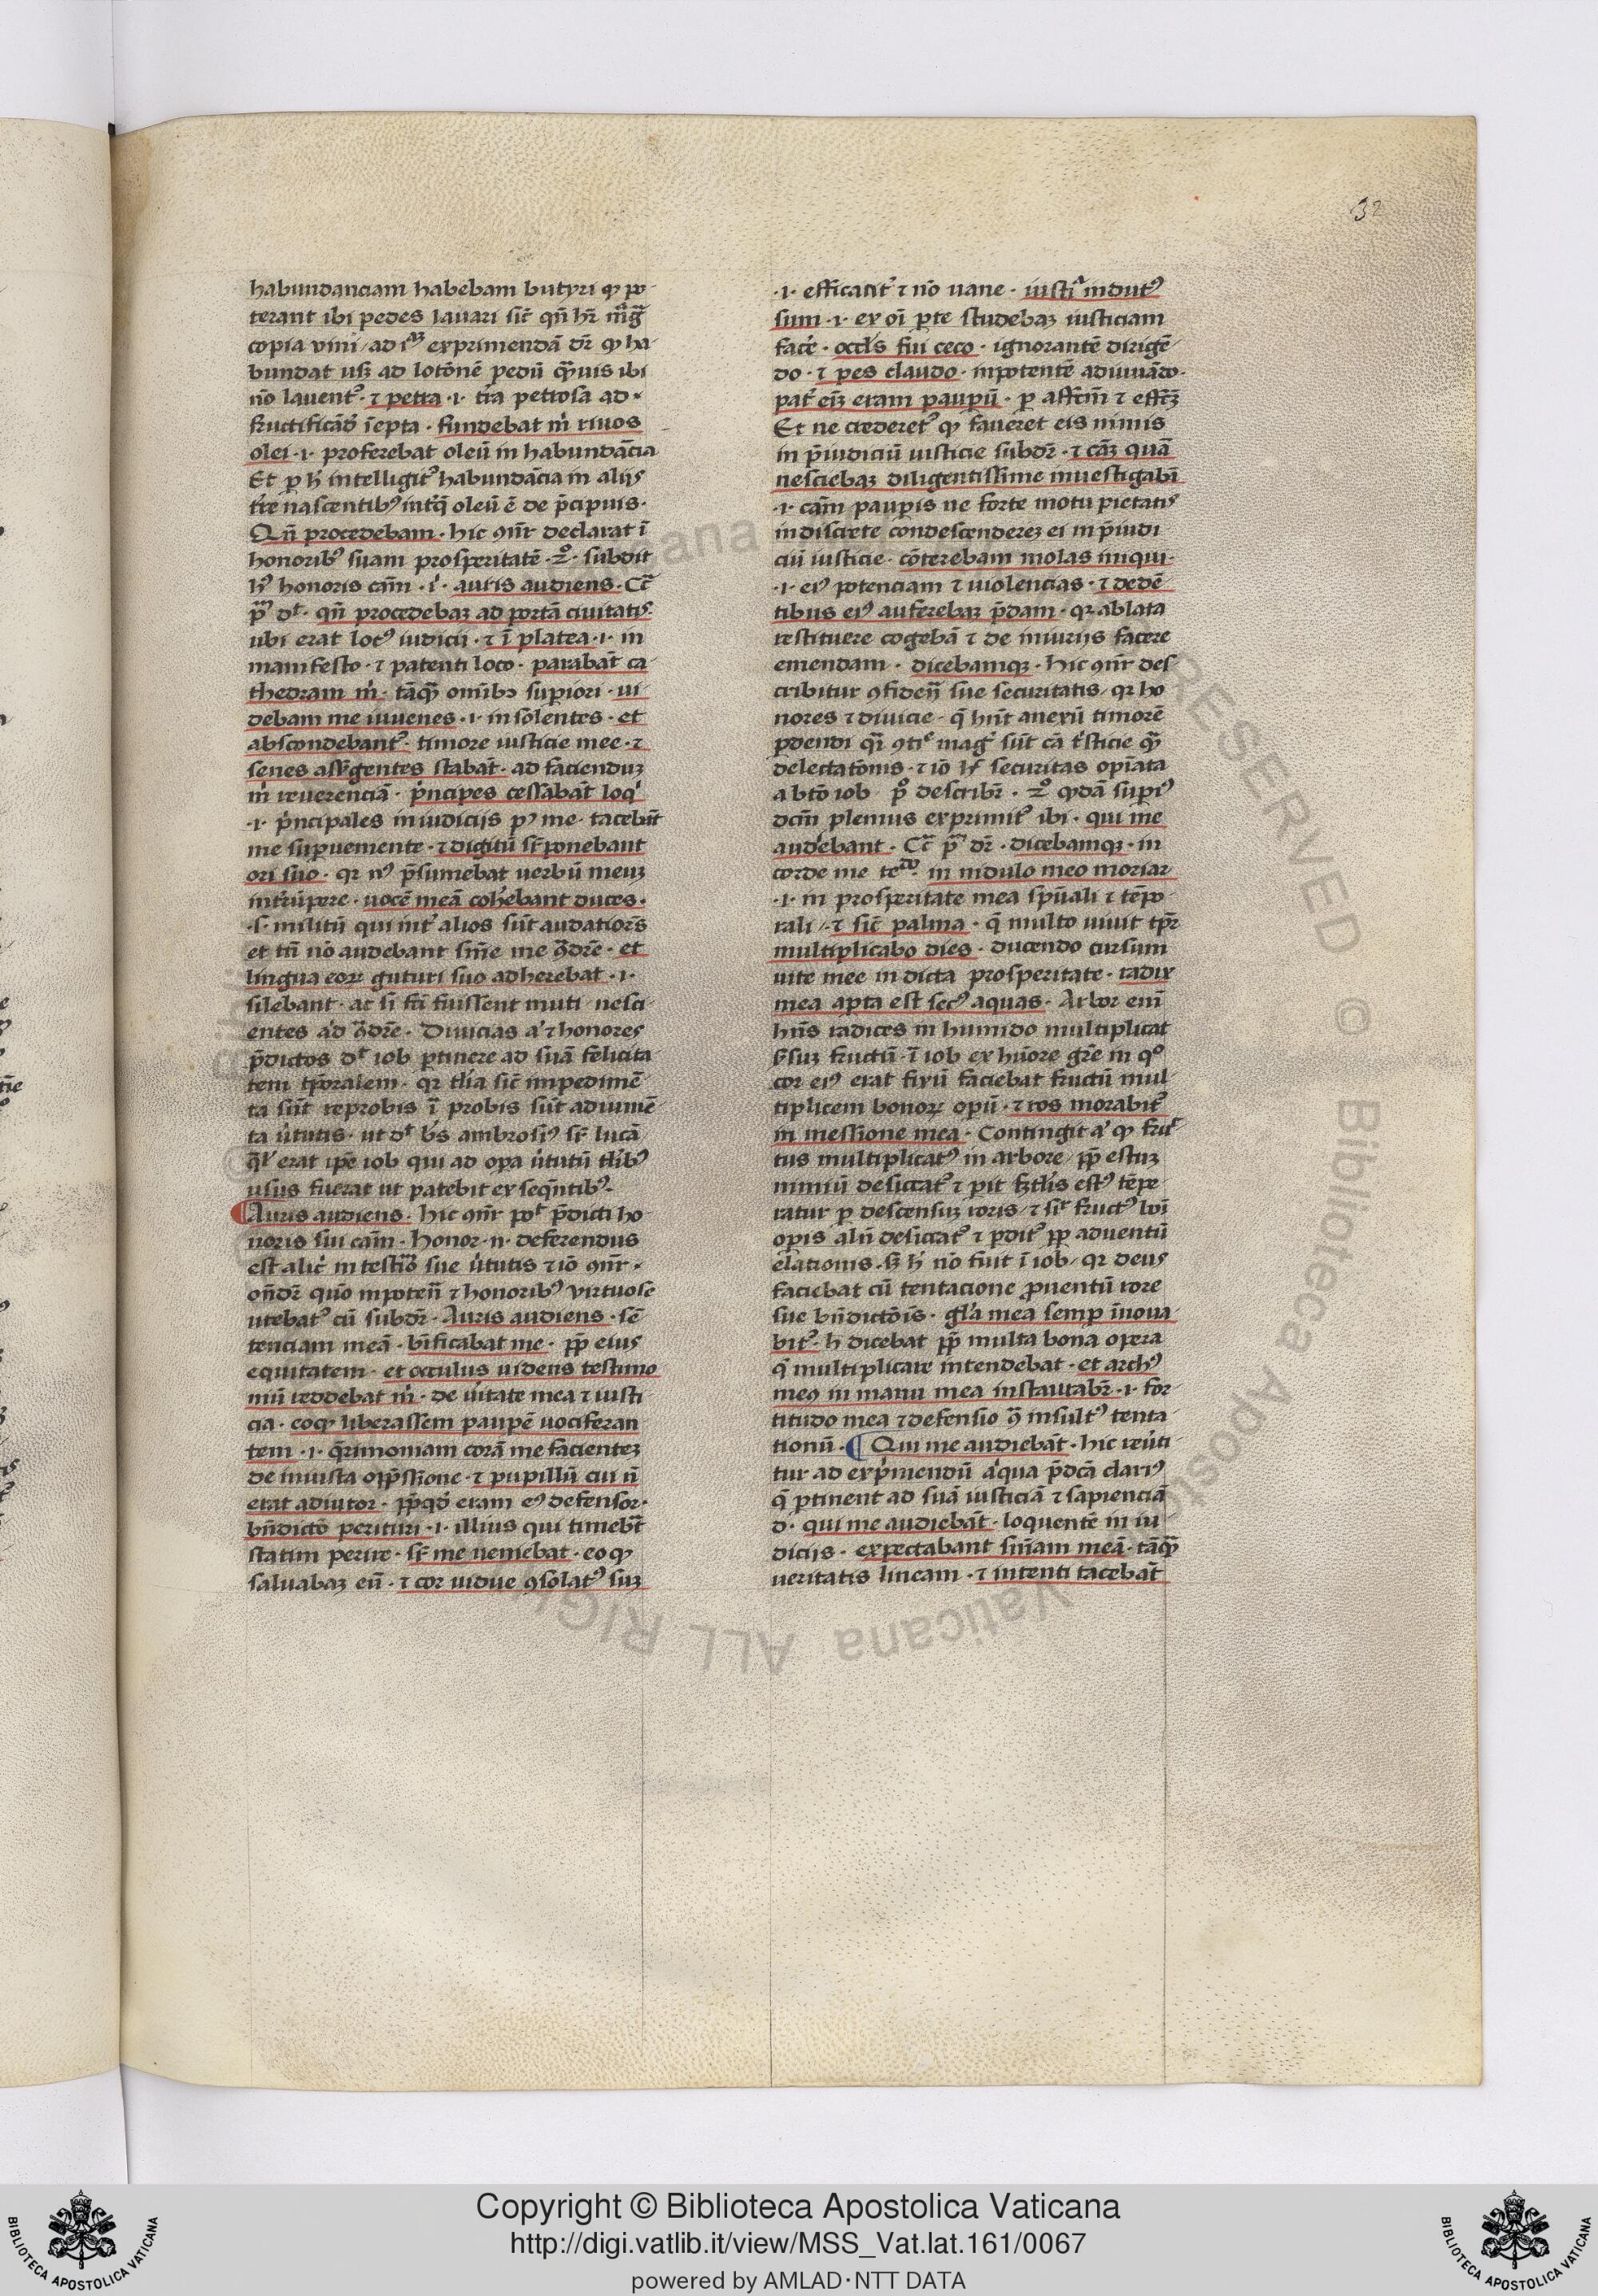 32
habundanciam habebam butyri ꝙ po
terant ibi pedes lauari sic̄ qn̄ hr̄ mag̃
copia vini / ad exprimendā dr̄ ꝙ ha
bundat usqꝫ ad lotōnē pedū quis ibi
nō lauent᷒ · ⁊ petra · i · tr̄a petrosa ad
fructificād īepta · fundebat m̄ riuos
olei · i · proferebat oleū in habundācia
Et ꝑ h̄ intelligit᷒ habundācia in aliis
tr̄e nascentibꝰ int̄ q̄ oleū ē de p̄cipuis ·
Qn̄ procedebam · hic ꝯn̄r declarat ī
honoribꝰ suam prosperitatē · 2º · subdit
hꝰ honoris cām · i · auris audiens · Cc̄a
pm̄ dt · qn̄ procedebaꝫ ad portā ciuitatis
ubi erat locꝰ iudicii · ⁊ ī platea · i · in
manifesto · ⁊ patenti loco · parabāt ca
thedram m̄ · tāqꝫ omībꝰ superiori · ui
debam me iuuenes · i · insolentes · et
abscondebant᷒ · timore iusticie mee · ⁊
senes assurgentes stabāt · ad facienduꝫ
m̄ reuerenciā · p̄ncipes cessabāt loqi
· i · p̄ncipales in iudiciis pꝰ me · tacebāt
me superueniente · ⁊ digitū sr̄ ponebant
ori suo · qr nꝰ p̄sumebat uerbū meuꝫ
int̄rūpere · uocē meā cohibebant duces ·
· s · militū qui int̄ alios sūt audatiores
et tn̄ nō audebant sn̄e me ꝯ̄dre · et
lingua eoꝝ guturi suo adherebat · i ·
silebant · ac si fuissent muti nesci
entes ad ꝯ̄dre · Diuicias ⁊ honores
p̄dictos dt iob ꝑtinere ad suā felicita
tem tp̄oralem · qr talia sic̄ impedimē
ta sūt reprobis ī probis sūt adiumē
ta uirtutis · ut dt bs̄ ambrosiꝰ sr̄ lucā
q̄lis erat ip̄e iob qui ad opa uirtutū talibꝰ
usus fuerat ut patebit ex seqūtibꝰ ·
¶ Auris audiens · hic ꝯn̄r pot p̄dicti ho
noris sui cām · honor · n · deferendus
est alicui in testimō sue uirtutis ⁊ iō ꝯn̄r ·
on̄dr̄ quō in potenc̄ ⁊ honoribꝰ virtuose
utebat᷒ cū subdr̄ · Auris audiens · sē
tenciam meā · bn̄ficabat me · pp̄ eius
equitatem · et occulus uidens testimo
niū reddebat m̄ · de uitate mea ⁊ iusti
cia · eoꝙ liberassem paupē uociferan
tem · i · q̄rimoniam corā me facienteꝫ
de iniusta opp̄ssione · ⁊ pupillū cui n̄
erat adiutor · pp̄ qd eram eꝰ defensor ·
bn̄dictō perituri · i · illius qui timebāt
statim perire · sr̄ me ueniebat · eo ꝙ
saluabaꝫ eū · ⁊ cor uidue ꝯsolatꝰ suꝫ
· i · efficacit᷒ ⁊ nō uane · iusticia indutꝰ
sum · i · ex oī ꝑte studebaꝫ iusticiam
facere · occls fui ceco · ignorantē dirigē
do · ⁊ pes claudo · inpotentē adiuuādo ·
pat᷒ eniꝫ eram paupū · ꝑ affcm̄ ⁊ effcꝫ
Et ne crederet᷒ ꝙ faueret eis nimis
in p̄iudiciū iusticie subdr̄ · ⁊ cāꝫ quā
nesciebaꝫ diligentissime inuestigabā
· i · cām pauꝑis ne forte motu pietatis
indiscrete condescendereꝫ ei in p̄iudi
ciū iusticie · cōterebam molas iniqui ·
· i · eiꝰ potenciam ⁊ uiolencias · ⁊ dedē
tibus eiꝰ auferebaꝫ p̄dam · qr ablata
restituere cogebā ⁊ de iniuriis facere
emendam · dicebamqꝫ · hic ꝯn̄r des
cribitur ꝯfidenc̄ sue securitatis / qr ho
nores ⁊ diuicie · q̄ hn̄t anexū timorē
ꝑdendi magis sūt cā tristicie qꝫ
delectatōnis · ⁊ iō hꝰ securitas opinata
a btō iob pº describr̄ · 2º quādā supiꝰ
dcm̄ plenius exprimit᷒ ibi · qui me
audebant · Cc̄a pm̄ dr̄ · dicebamqꝫ · in
corde meo · in nidulo meo moriar
· i · in prosperitate mea spūali ⁊ tēpo
rali / · ⁊ sic̄ palma · q̄ multo uiuit tp̄r
multiplicabo dies · ducendo cursum
uite mee in dicta prosperitate · radix
mea apta est secꝰ aquas · Arbor enī
hn̄s radices in humido multiplicat
suꝫ fructū · ī iob ex hūore gr̄e in qº
cor eiꝰ erat fixū faciebat fructū mul
tiplicem bonoꝝ opū · ⁊ ros morabit᷒
in messione mea · Contingit ꝙ fruc
tus multiplicatꝰ in arbore / pp̄ estuꝫ
nimiū desiccat᷒ ⁊ pit estꝰ tēpe
ratur ꝑ descensuꝫ roris / ⁊ sic fructꝰ boni
opis aliqn̄ desiccat᷒ ⁊ ꝑdit᷒ pp̄ aduentū
elationis · sꝫ h̄ nō fuit ī iob / qr deus
faciebat cū tentacione prouentū rore
sue bn̄dictōis · gl̄a mea semp īnoua
bit᷒ · h̄ dicebat pp̄ multa bona opera
q̄ multiplicare intendebat · et archꝰ
meꝰ in manu mea instaurabr̄ · i · for
titudo mea ⁊ defensio ꝯ̄ insultꝰ tenta
tionū · ¶ Qui me audiebāt · hic reuti
tur ad exp̄mendū aliqua p̄dcā clariꝰ
q̄ ꝑtinent ad suā iusticiā ⁊ sapienciā
d · qui me audiebāt · loquentē in iu
diciis · expectabant sn̄iam meā · tāqꝫ
ueritatis lineam · ⁊ intenti tacebāt
Copyright © Biblioteca Apostolica Vaticana
http://digi.vatlib.it/view/MSS_Vat.lat.161/0067
powered by AMLAD·NTT DATA